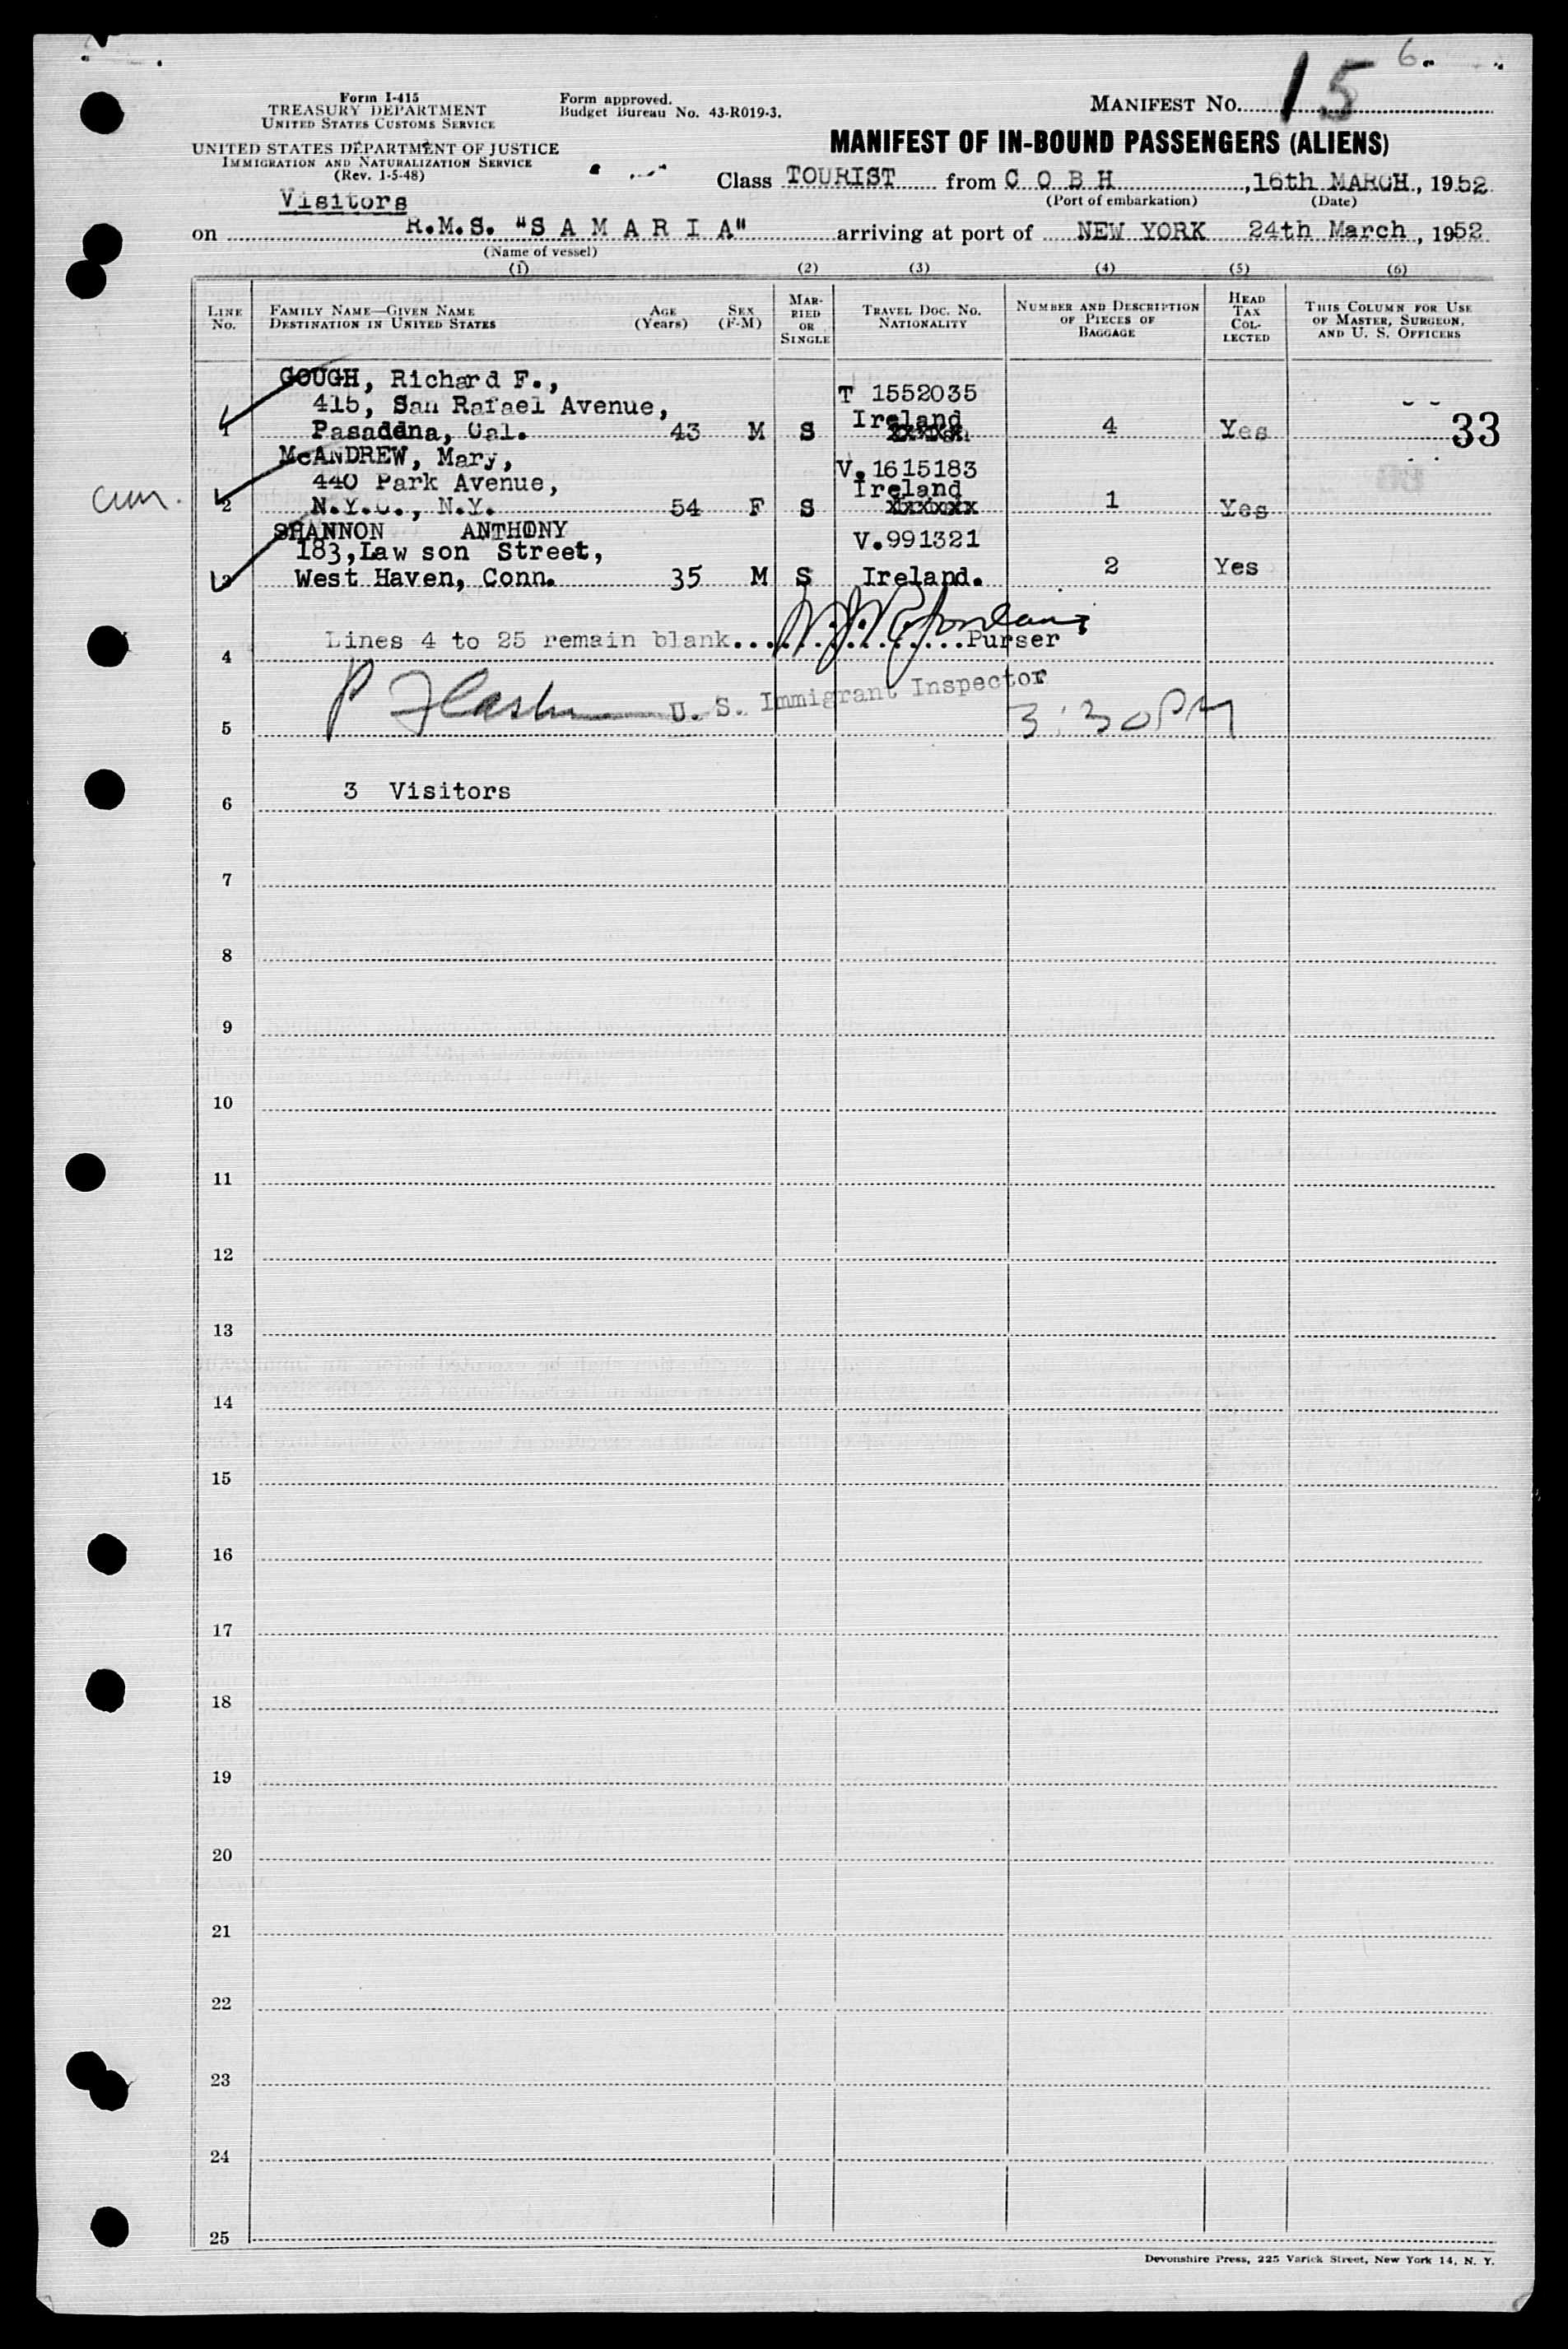 6.
Form I-415
TREASURY DEPARTMENT
UNITED STATES CUSTOMS SERVICE
UNITED STATES DEPARTMENT OF JUSTICE
IMMIGRATION AND NATURALIZATION SERVICE
(Rev. 1-5-48)
Form approved.
Budget Bureau No. 43-R019-3.
MANIFEST NO. 15
MANIFEST OF IN-BOUND PASSENGERS (ALIENS)
Class TOURIST from C O B H, 16th MARCH, 1952
(Port of embarkation) (Date)
Visitors
on R.M.S. "S A M A R I A" arriving at port of NEW YORK 24th March, 1952
(Name of vessel)
(1) (2) (3) (4) (5) (6)
LINE NO. FAMILY NAME—GIVEN NAME DESTINATION IN UNITED STATES AGE (Years) SEX (F-M) MARRIED OR SINGLE TRAVEL DOC. NO. NATIONALITY NUMBER AND DESCRIPTION OF PIECES OF BAGGAGE HEAD TAX COLLECTED THIS COLUMN FOR USE OF MASTER, SURGEON, AND U. S. OFFICERS
GOUGH, Richard F.,
415, San Rafael Avenue, T 1552035
1 Pasaddna, Cal. 43 M S Ireland 4 Yes 33
McANDREW, Mary,
440 Park Avenue, V.1615183
2 N.Y.C., N.Y. 54 F S Ireland xxxxxx 1 Yes
SHANNON ANTHONY
183,Law son Street, V.991321
3 West Haven, Conn. 35 M S Ireland. 2 Yes
Lines 4 to 25 remain blank.................Purser
4
U. S. Immigrant Inspector
3:30PM
5
3 Visitors
6
7
8
9
10
11
12
13
14
15
16
17
18
19
20
21
22
23
24
25
Devonshire Press, 225 Varick Street, New York 14, N. Y.